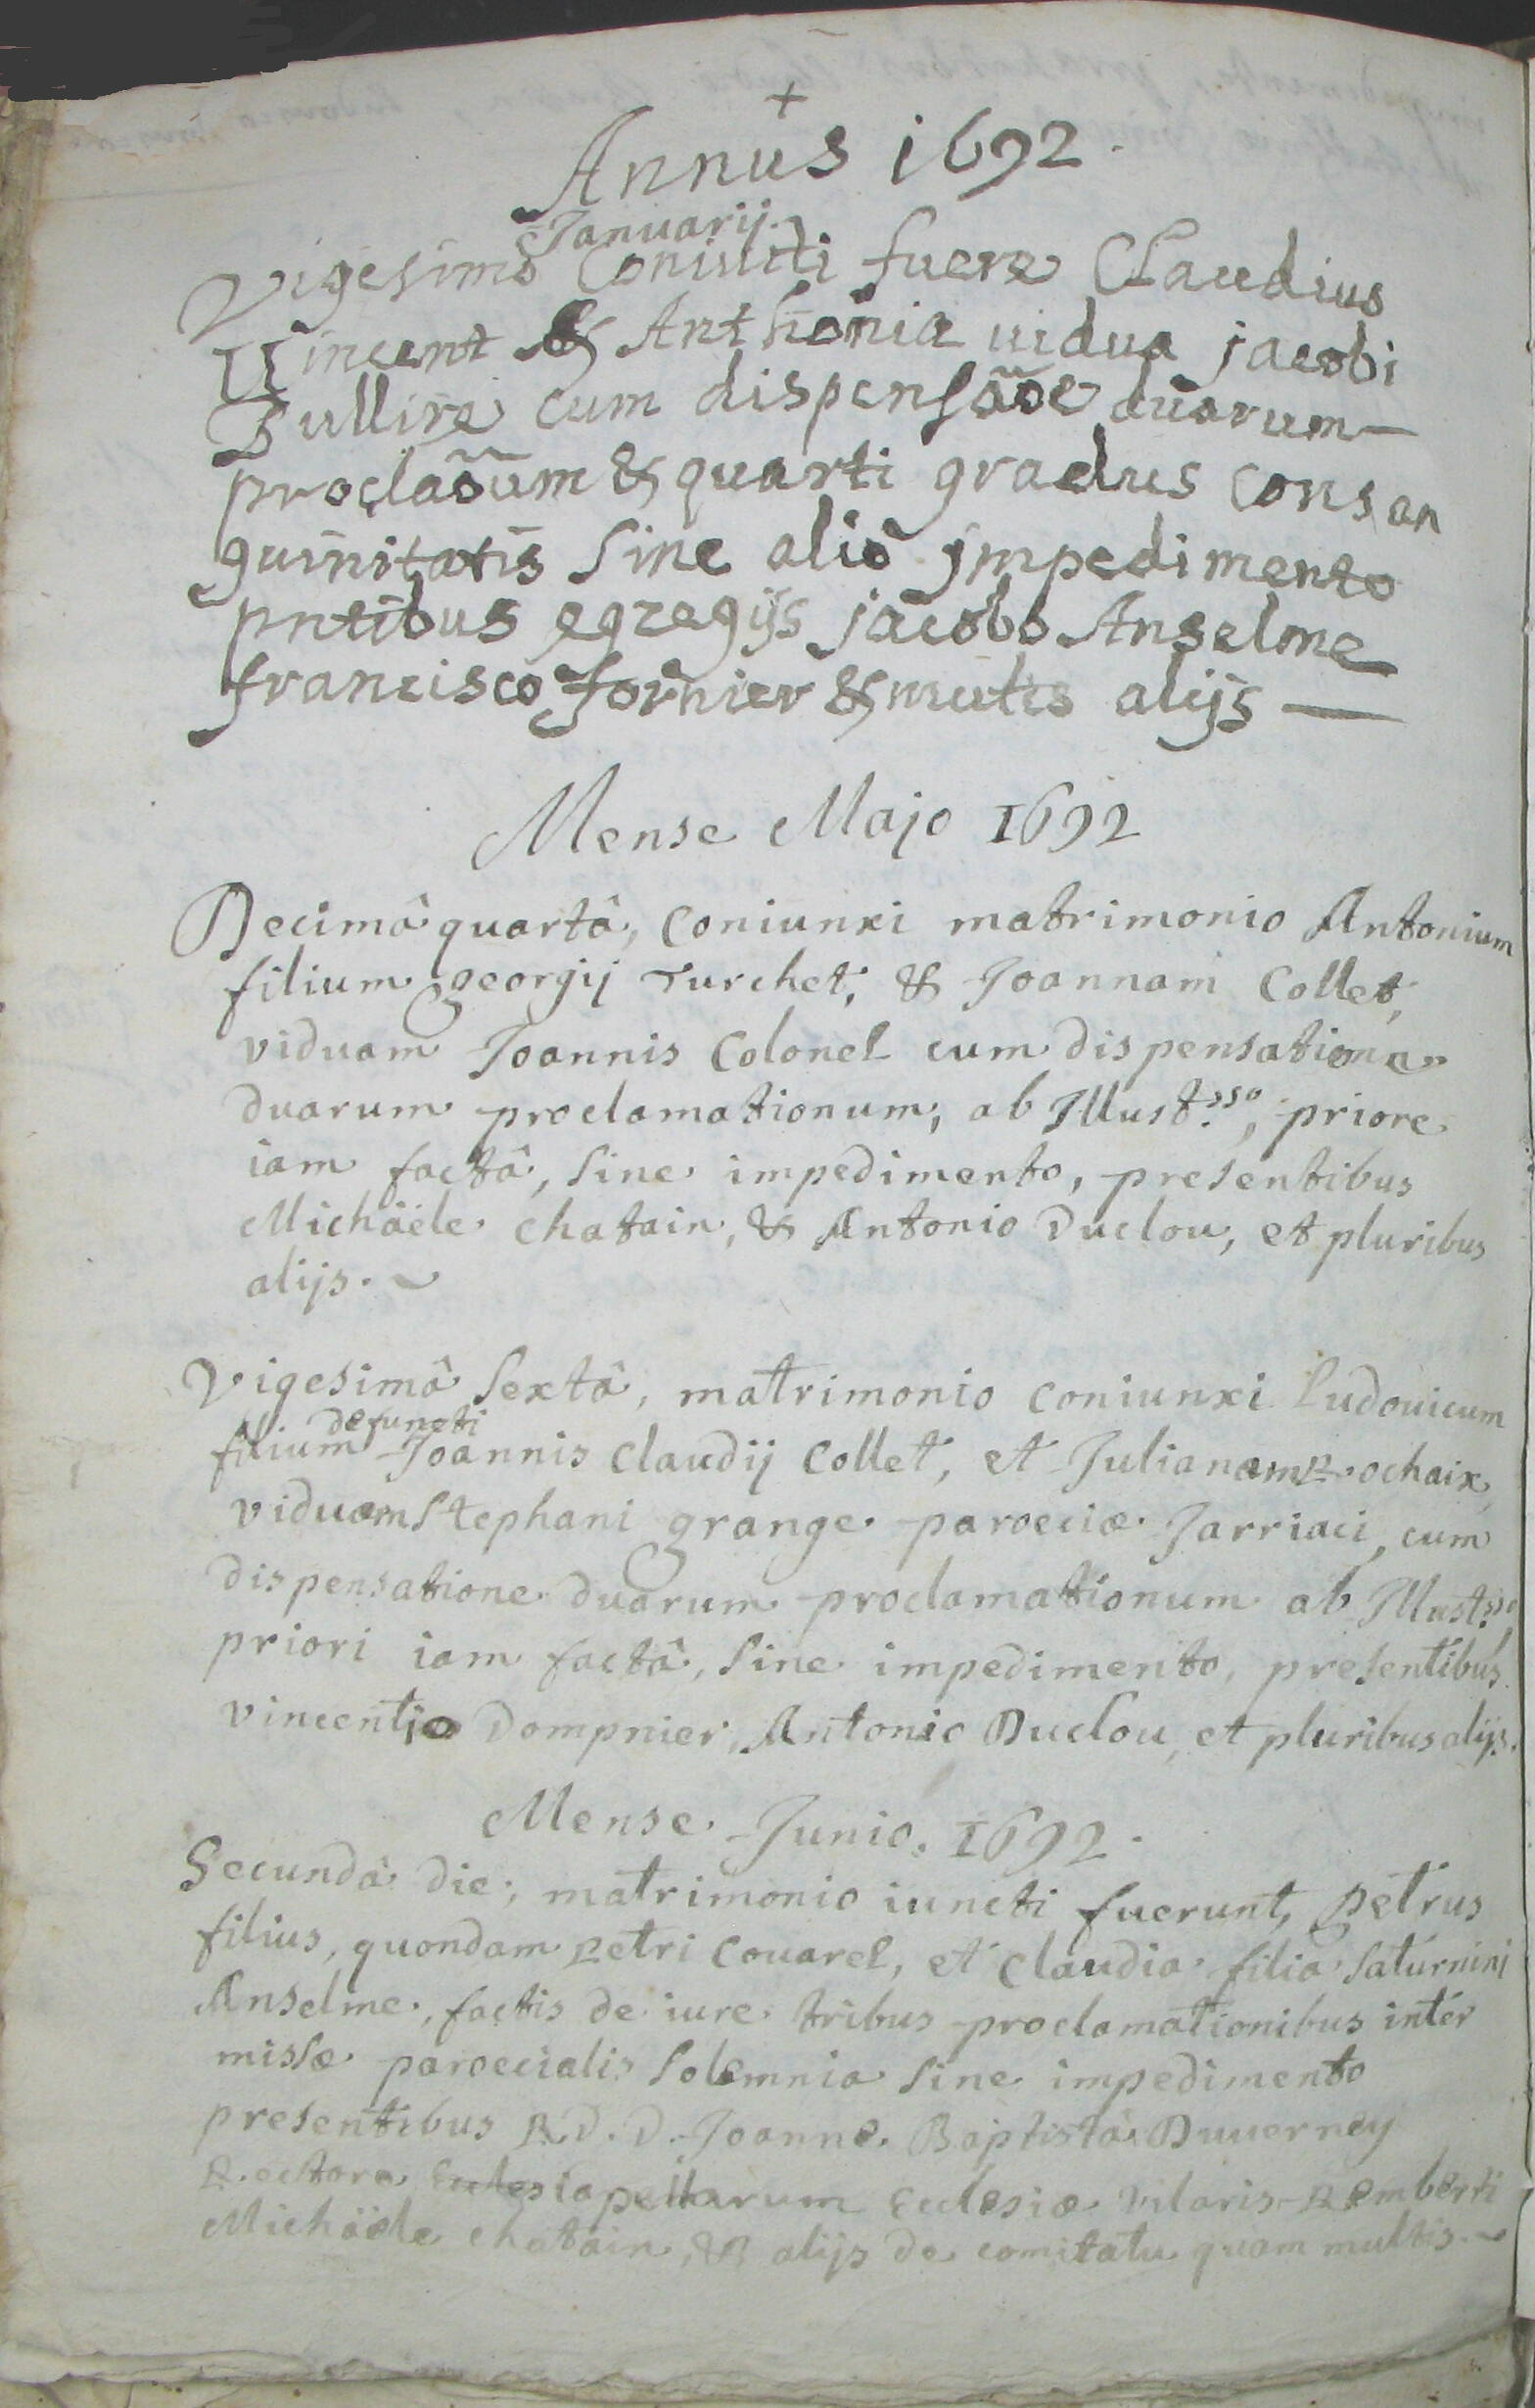 +
Annus 1692.
Januarij.
Vigesimo Coniucti fuere Claudius
Vincent & Anthonia uidua jacobi
Bullire cum dispensaõe duarum
proclaõum & quarti gradus consan
guinitatis sine alio jmpedimento
pntibus egregijs jacobo Anselme
francisco fornier & multis alijs
Mense Majo 1692
Decimâ quartâ, Coniunxi matrimonio Antonium
filium georgij Turchet, & Joannam Collet,
viduam Joannis Colonel cum dispensatione
duarum proclamationum, ab Illust.sso, priore
iam factâ, sine impedimento, presentibus
Michäele chatain, & Antonio Duclou, et pluribus
alijs.
Vigesimâ sextâ, matrimonio coniunxi Ludouicum
defuncti
filium Joannis Claudij Collet, et Julianam Rochaix,
viduam Stephani grange paroeciæ Jarriaci, cum
dispensatione duarum proclamationum ab Illust.sso
priori iam factâ, sine impedimento, presentibus
vincentio Dompnier, Antonio Duclou, et pluribus alijs.
Mense Junio. 1692.
Secundâ die, matrimonio iuncti fuerunt, petrus
filius, quondam petri Couarel, et Claudia filia saturnini
Anselme, factis de iure tribus proclamationibus inter
missæ paroecialis solemnia sine impedimento
presentibus R.D.D. Joanne Baptistâ Duuerney
Rectore capellarum Ecclesiæ vilaris Remberti
Michäele chatain, & alijs de comitatu quam multis.